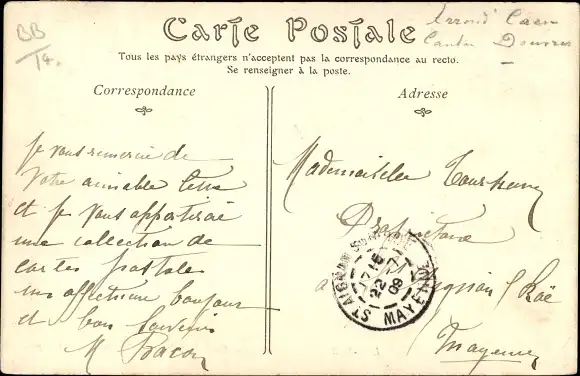 BB
14.
Arrond Caen
Canton Douvres
Carte Postale
Tous les pays étrangers n'acceptent pas la correspondance au recto.
Se renseigner à la poste.
Correspondance
Je vous remercie de
votre aimable lettre
et je vous apporterai
une collection de
cartes postales
un affectueux bonjour
et bon souvenir
M Bacon
Adresse
Mademoiselle
Propriétaire
à St Aignan s/ Roë
Mayenne
ST AIGNAN SUR ROE
22
09
MAYENNE